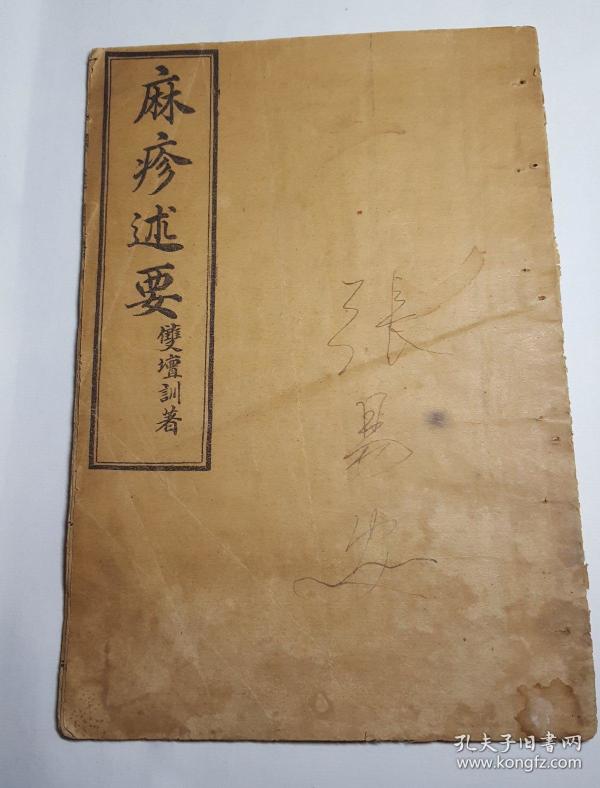 麻疹述要
雙壇訓著
張易安
孔夫子旧书网
www.kongfz.com